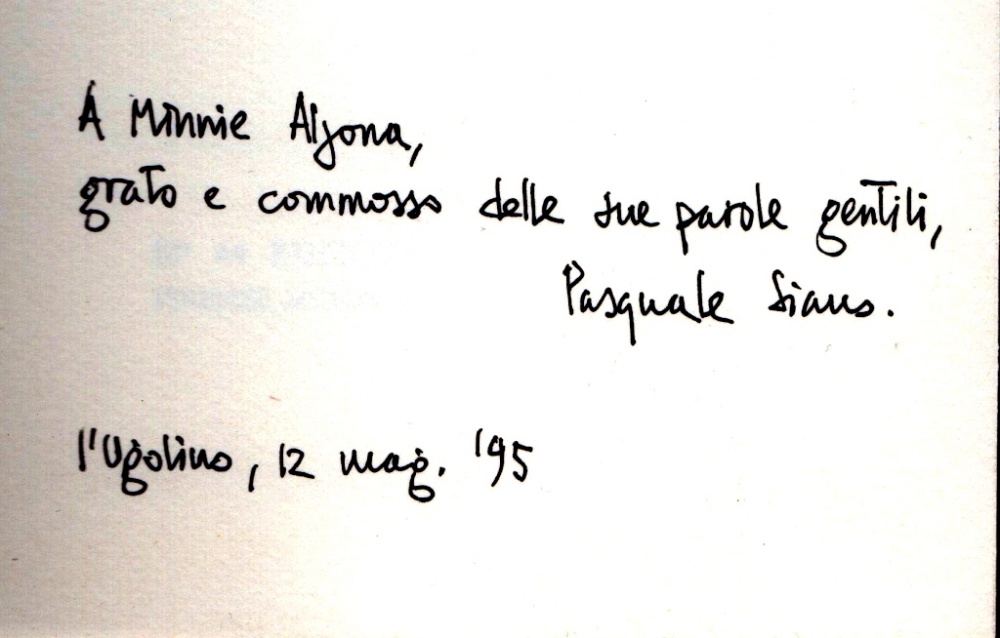 A Minnie Aljona,
grato e commosso delle sue parole gentili,
Pasquale Siano.
l'Ugolino, 12 mag. '95